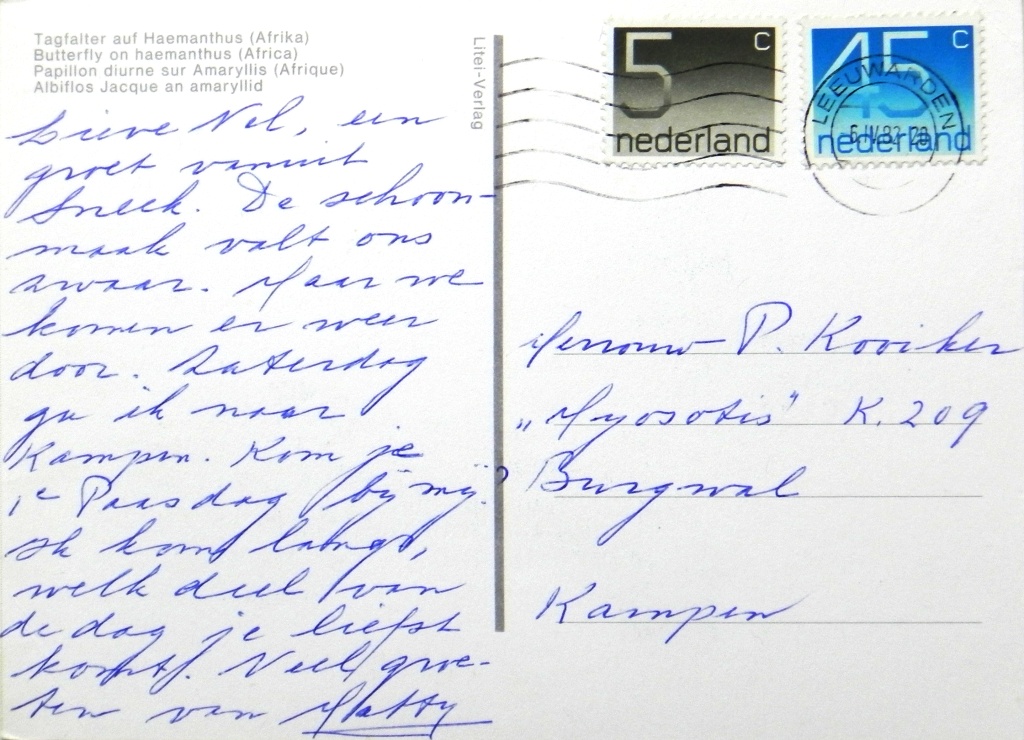 Tagfalter auf Haemanthus (Afrika)
Butterfly on haemanthus (Africa)
Papillon diurne sur Amaryllis (Afrique)
Albiflos Jacque an amaryllid
Litei-Verlag
Lieve Nel, een
groet vanuit
Sneek. De schoon-
maak valt ons
zwaar. Maar we
komen er weer
door. Zaterdag
ga ik naar
Kampen. Kom je
1e Paasdag bij mij?
Ik kom langs,
welk deel van
de dag je liefst
komt. Veel groe-
ten van Matty
5 c
nederland
45 c
nederland
LEEUWARDEN
Mevrouw P. Kooiker
„Myosotis" K. 209
Burgwal
Kampen